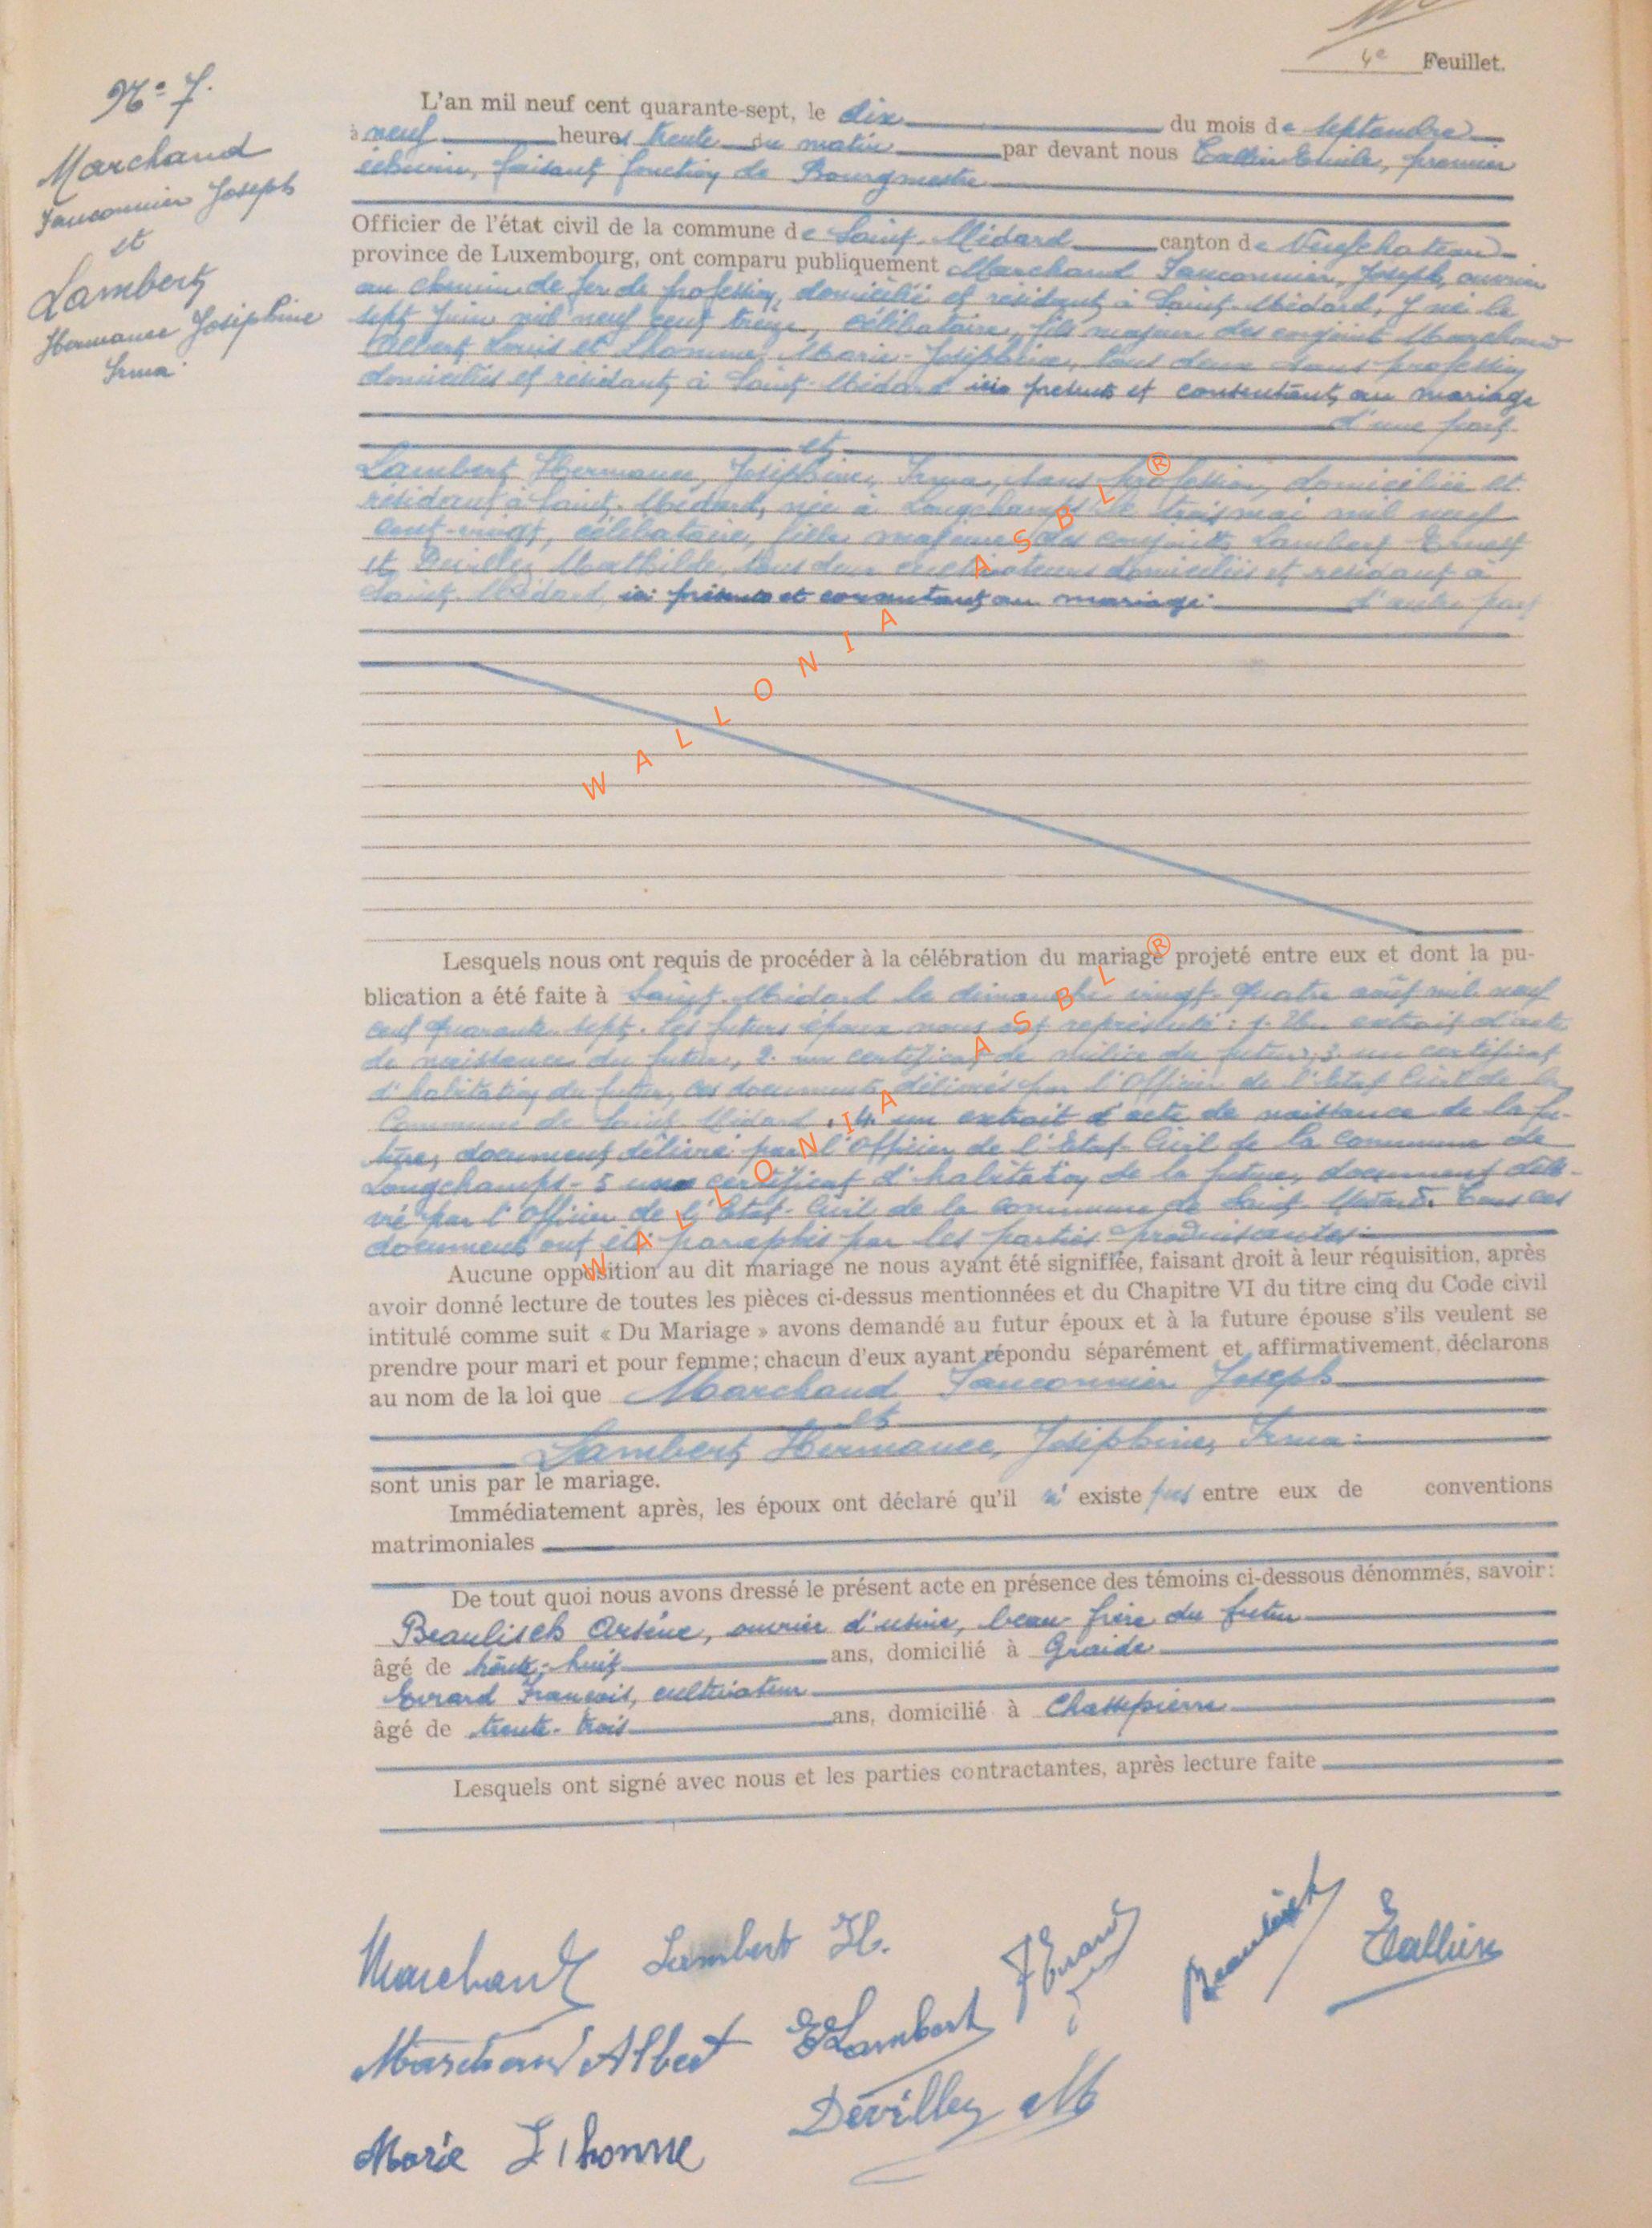 4e Feuillet.
No 7.
Marchand
Fauconnier Joseph
et
Lambert
Hermance Joséphine
Irma
L'an mil neuf cent quarante-sept, le dix du mois de septembre
à neuf heures trente du matin par devant nous Emile, premier
échevin, faisant fonction de Bourgmestre
Officier de l'état civil de la commune de Saint-Médard canton de Neufchateau
province de Luxembourg, ont comparu publiquement Marchand Fauconnier, Joseph, ouvrier
au chemin de fer de profession, domicilié et résidant à Saint-Médard, y né le
sept juin mil neuf cent treize, célibataire, fils majeur des conjoints Marchand
Albert Louis et Lhomme, Marie-Joséphine, tous deux sans profession
domiciliés et résidant à Saint-Médard ici présents et consentant au mariage
d'une part
et
Lambert Hermance, Joséphine, Irma, sans profession, domiciliée et
résidant à Saint-Médard, née à Longchamps le trois mai mil neuf
cent-vingt, célibataire, fille majeure des conjoints Lambert Ernest
et Mathilde, tous deux cultivateurs domiciliés et résidant à
Saint-Médard, ici présents et consentant au mariage d'autre part
WALLONIA ASBL®
Lesquels nous ont requis de procéder à la célébration du mariage projeté entre eux et dont la pu-
blication a été faite à Saint-Médard le dimanche vingt-quatre août mil neuf
cent quarante-sept. Les futurs époux nous ont représenté : 1. Un extrait d'acte
de naissance du futur, 2. un certificat de milice du futur, 3. un certificat
d'habitation du futur, ces documents délivrés par l'Officier de l'Etat Civil de la
Commune de Saint-Médard, 4. un extrait d'acte de naissance de la fu-
ture, document délivré par l'Officier de l'Etat-Civil de la commune de
Longchamps - 5 un certificat d'habitation de la future, document déli-
vré par l'Officier de l'Etat-Civil de la commune de Saint-Médard. Tous ces
documents ont été paraphés par les parties produisantes.
WALLONIA ASBL®
Aucune opposition au dit mariage ne nous ayant été signifiée, faisant droit à leur réquisition, après
avoir donné lecture de toutes les pièces ci-dessus mentionnées et du Chapitre VI du titre cinq du Code civil
intitulé comme suit « Du Mariage » avons demandé au futur époux et à la future épouse s'ils veulent se
prendre pour mari et pour femme; chacun d'eux ayant répondu séparément et affirmativement, déclarons
au nom de la loi que Marchand Fauconnier Joseph
et
Lambert, Hermance, Joséphine, Irma
sont unis par le mariage.
Immédiatement après, les époux ont déclaré qu'il n' existe pas entre eux de conventions
matrimoniales
De tout quoi nous avons dressé le présent acte en présence des témoins ci-dessous dénommés, savoir:
Arsène, ouvrier d'usine, beau-frère du futur
âgé de trente-huit ans, domicilié à Graide
Evrard François, cultivateur
âgé de trente-trois ans, domicilié à Chassepierre
Lesquels ont signé avec nous et les parties contractantes, après lecture faite
Marchand Lambert H. F Evrard
Marchand Albert E Lambert
Marie Lhomme Devillez M